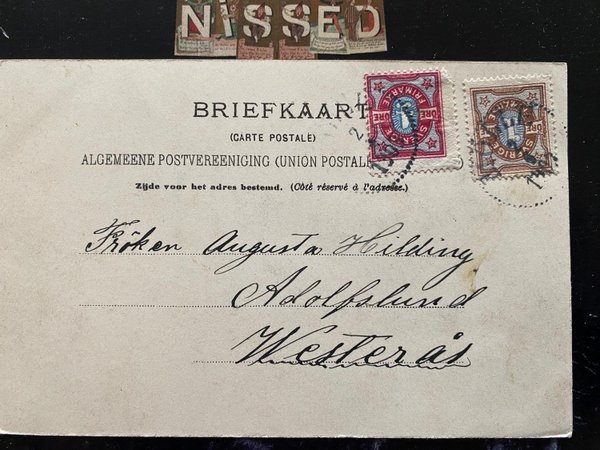 NISSED
BRIEFKAART
(CARTE POSTALE)
ALGEMEENE POSTVEREENIGING (UNION POSTAL
Zijde voor het adres bestemd. (Côté réservé à l'adresse.)
FRIMÄRKE
1
SVERIGE
ÖRE
SVERIGE
1
ÖRE
Fröken Augusta Hilding
Adolfslund
Westerås